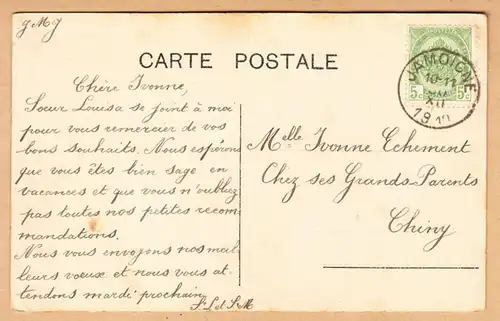 J M J
CARTE POSTALE
Chère Ivonne,
Sœur Louisa se joint à moi
pour vous remercier de vos
bons souhaits. Nous espérons
que vous êtes bien sage en
vacances et que vous n'oubliez
pas toutes nos petites recom
mandations.
Nous vous envoyons nos meil
leurs vœux et nous vous at-
tendons mardi prochain.
S L et S M
JAMOIGNE
10-11
XII
1910
5c 5c
Melle Ivonne Echement
Chez ses Grands-Parents
Chiny